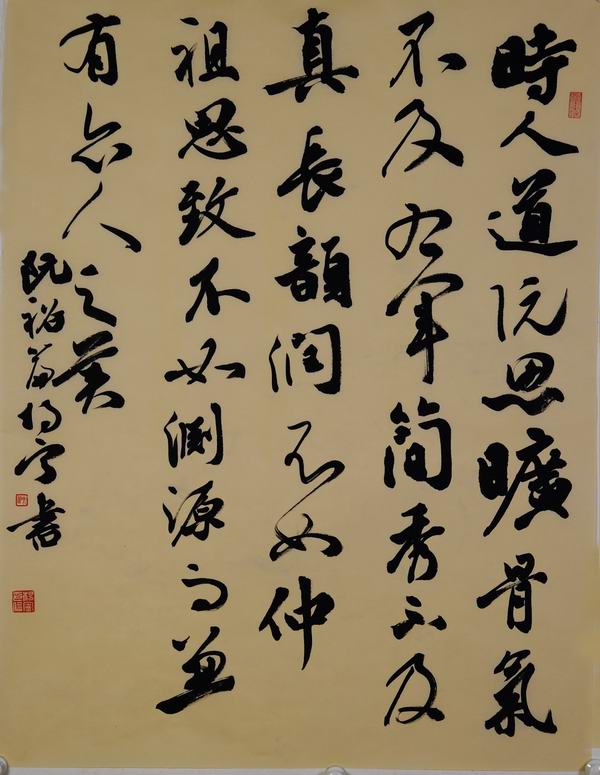 時人道阮思曠骨氣
不及右軍簡秀不及
真長韻潤不如仲
祖思致不如淵源而兼
有人之美
阮裕篇楊宁書